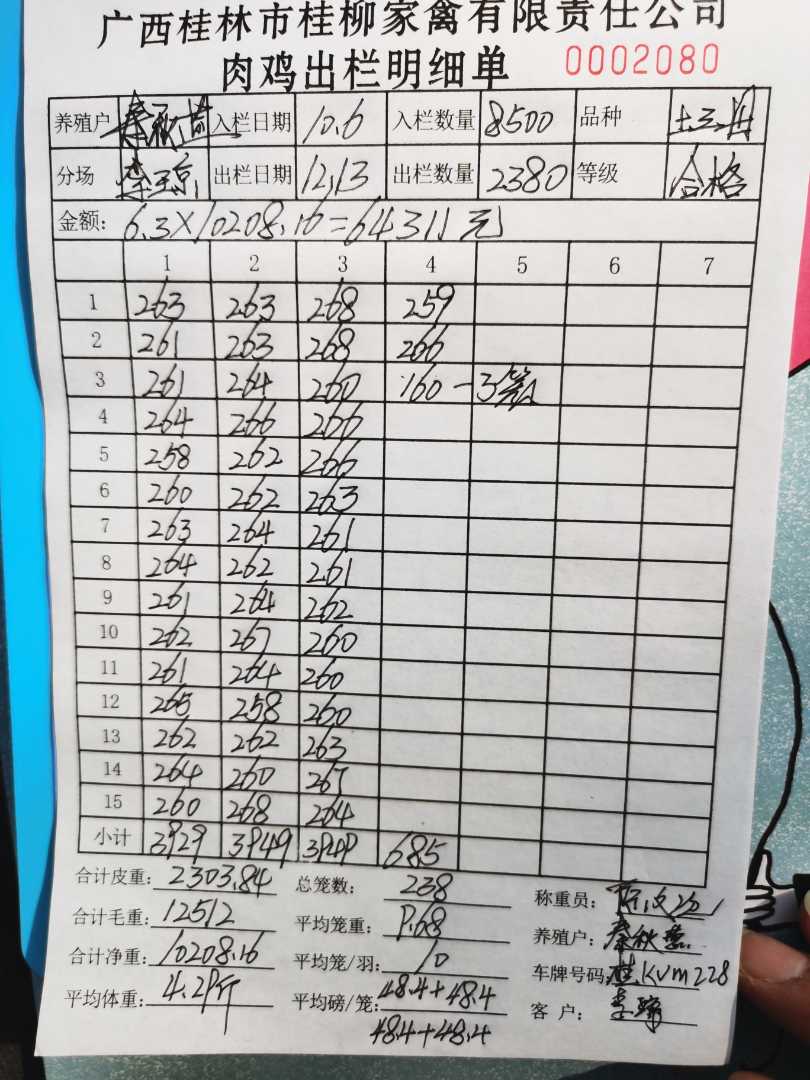 广西桂林市桂柳家禽有限责任公司
肉鸡出栏明细单 0002080
养殖户 入栏日期 10.6 入栏数量 8500 品种
分场 出栏日期 12.13 出栏数量 2380 等级 合格
金额: 6.3×10208.16=64311元
1 2 3 4 5 6 7
1 263 263 268 259
2 261 263 268 266
3 261 264 260 160-3笼
4 264 266 266
5 258 262 266
6 260 262 263
7 263 264 261
8 264 262 261
9 261 264 262
10 262 267 260
11 261 264 260
12 265 258 260
13 262 262 263
14 264 260 267
15 260 268 264
小计 3929 3949 3949 685
合计皮重: 2303.84 总笼数: 238 称重员:
合计毛重: 12512 平均笼重: 9.68 养殖户: 秦秋
合计净重: 10208.16 平均笼/羽: 10 车牌号码: 桂KVM228
平均体重: 4.29斤 平均磅/笼: 48.4+48.4 客户:
48.4+48.4